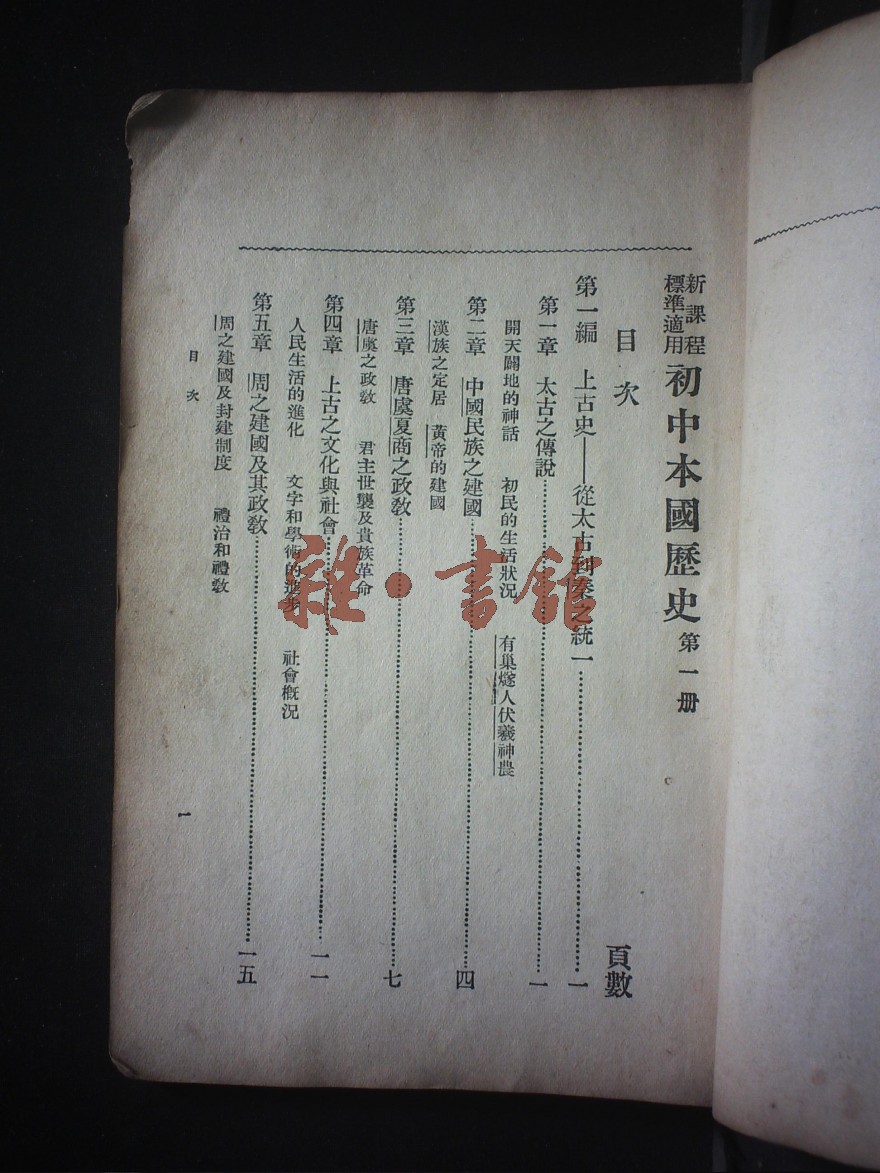 新課程標準適用 初中本國歷史 第一册
目次 頁數
第一編 上古史——從太古到秦之統一……一
第一章 太古之傳說……一
開天闢地的神話 初民的生活狀況 有巢燧人伏羲神農
第二章 中國民族之建國……四
漢族之定居 黃帝的建國
第三章 唐虞夏商之政教……七
唐虞之政教 君主世襲及貴族革命
第四章 上古之文化與社會……一一
人民生活的進化 文字和學術的進步 社會概況
第五章 周之建國及其政教……一五
周之建國及封建制度 禮治和禮教
目次
一
雜·書館